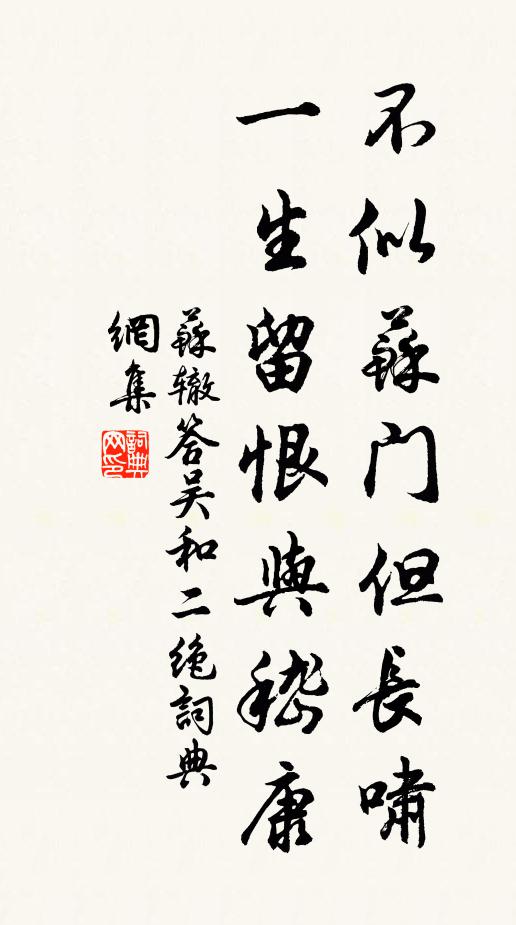 不似蘇门但長嘯
一生留恨與嵇康
蘇辙答吴和二绝詞典
網集
詞典网印